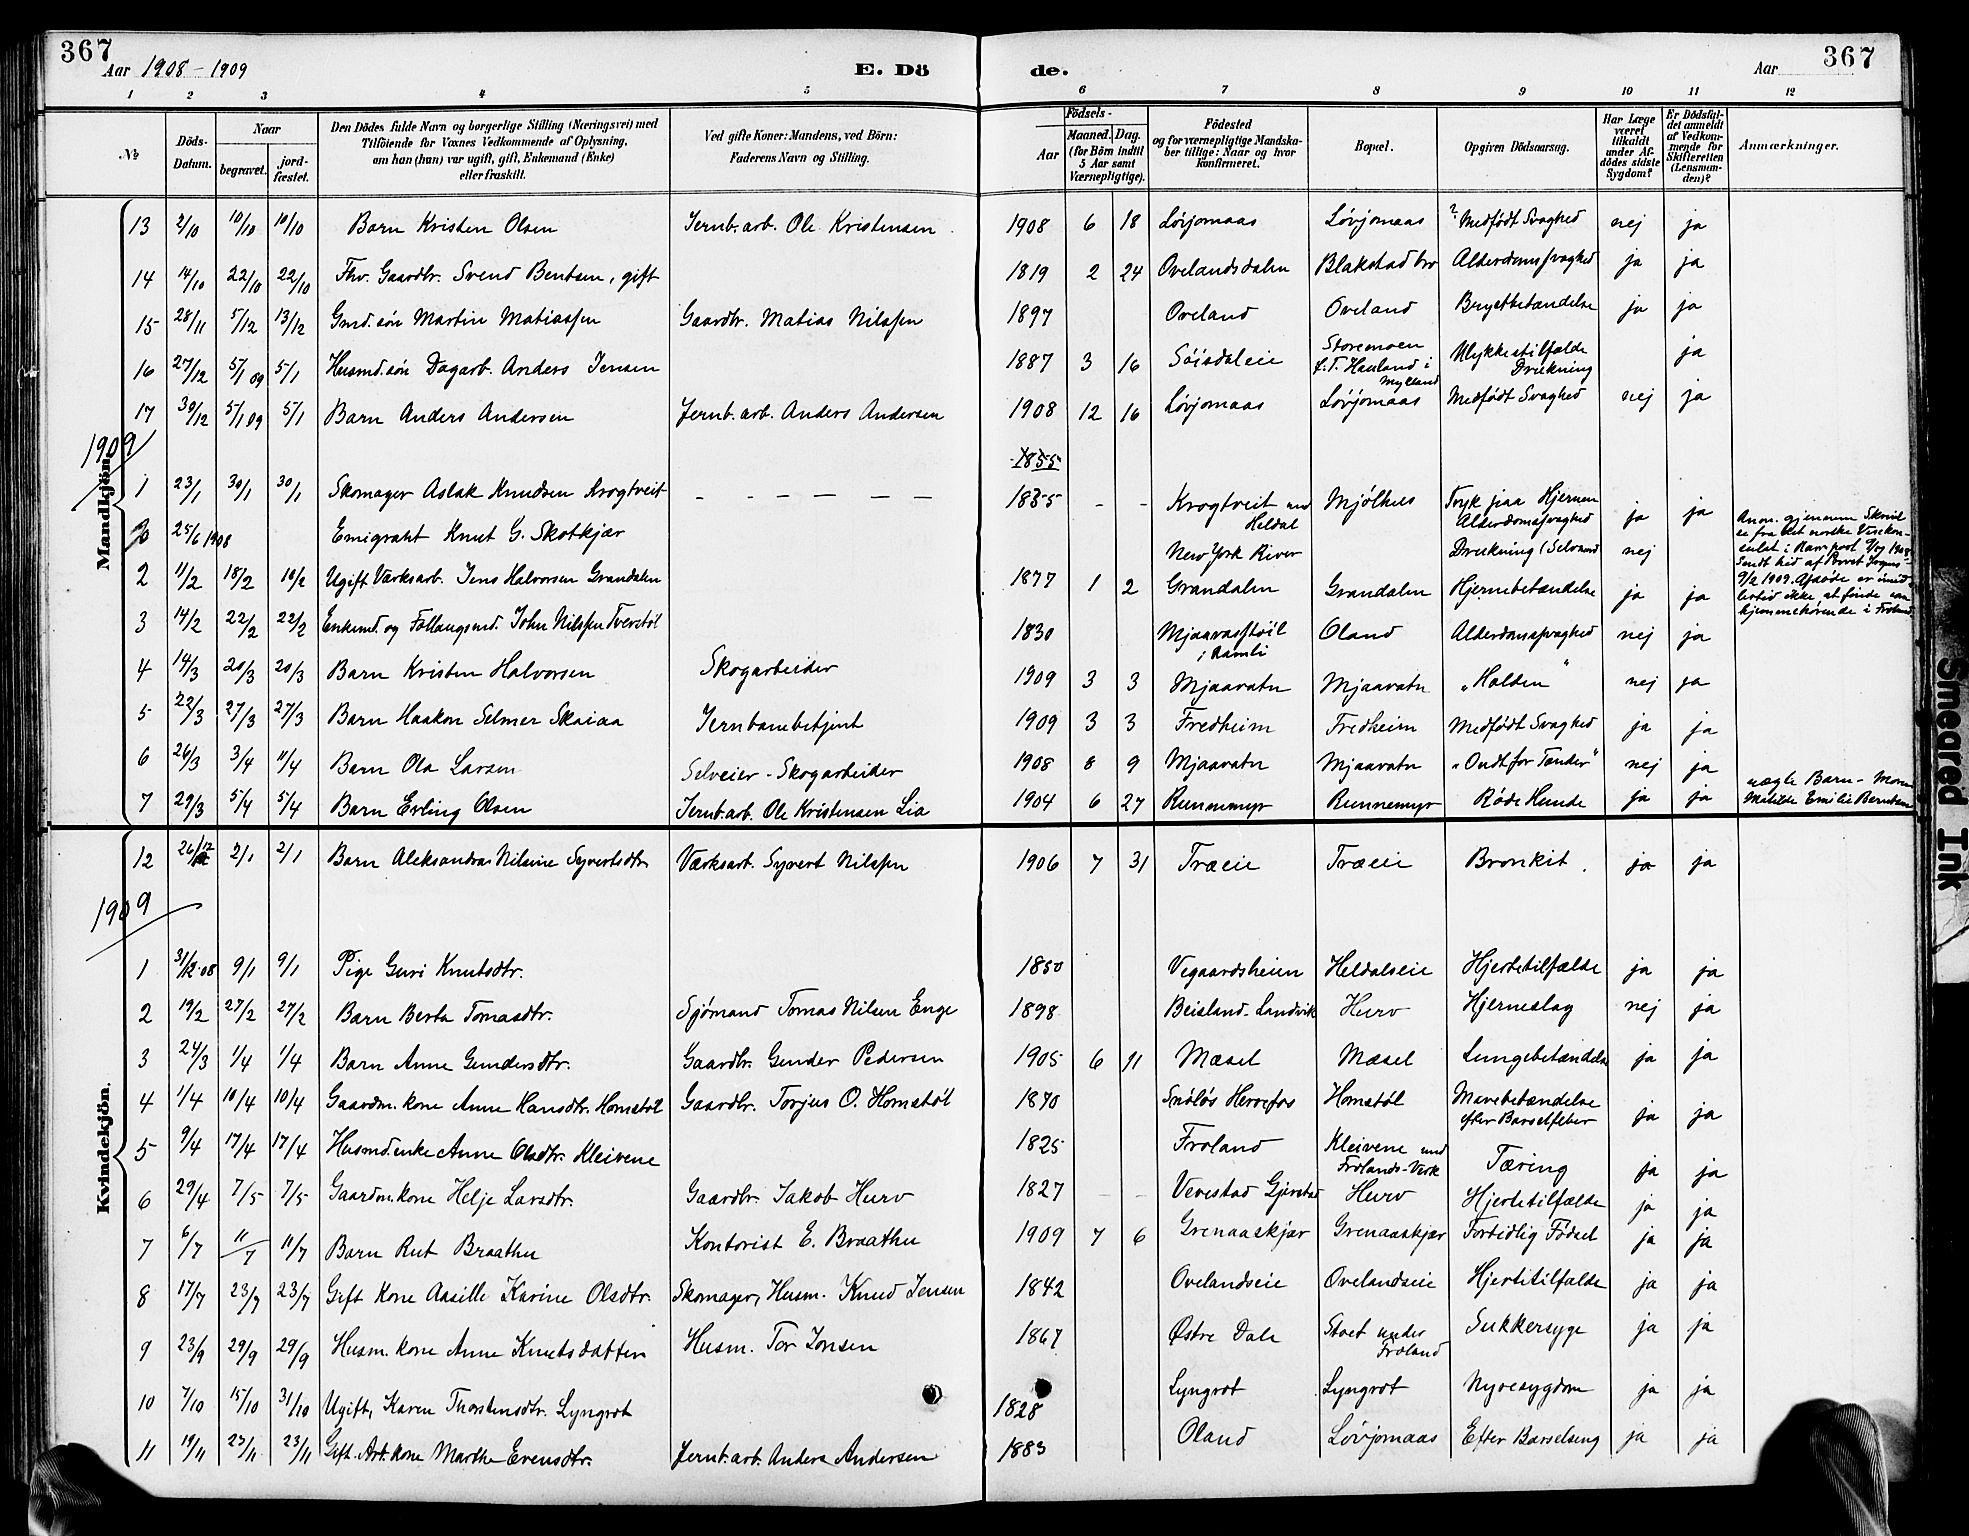 367
Aar 1908 - 1909
E. Dö
de.
Aar
367
1 2 3 4 5 6 7 8 9 10 11 12
№
Döds-Datum.
Naar
begravet.
jord-fæstet.
Den Dödes fulde Navn og borgerlige Stilling (Næringsvei) med
Tilföiende for Voxnes Vedkommende af Oplysning,
om han (hun) var ugift, gift, Enkemand (Enke)
eller fraskilt.
Ved gifte Koner: Mandens, ved Börn:
Faderens Navn og Stilling.
Födsels-
Aar
Maaned. Dag.
(for Börn indtil
5 Aar samt
Værnepligtige).
Födested
og for værnepligtige Mandska-
ber tillige: Naar og hvor
konfirmeret.
Bopæl.
Opgiven Dödsaarsag.
Har Læge
været
tilkaldt
under Af-
dödes sidste
Sygdom?
Er Dödsfal-
det anmeldt
af Vedkom-
mende for
Skifteretten
(Lensman-
den)?
Anmærkninger.
Mandkjön.
13 2/10 10/10 10/10 Barn Kristen Olsen Jernb.arb. Ole Kristensen 1908 6 18 Løvjomaas Løvjomaas ? Medfødt Svaghed nej ja
14 14/10 22/10 22/10 Fhv. Gaardbr. Svend Bentsen, gift 1819 2 24 Ovelandsdalen Blakstad bro Alderdomssvaghed ja ja
15 28/11 5/12 13/12 Gmd.søn Martin Matiassen Gaardbr. Matias Nilssen 1897 Oveland Oveland Brystbetændelse ja ja
16 27/12 5/1 09 5/1 Husmd.søn Dagarb. Anders Jensen 1887 3 16 Søisdaleie Storemoen f.T. Hauland i Mykland Ulykkestilfælde Drukning ja
17 30/12 5/1 09 5/1 Barn Anders Andersen Jernb.arb. Anders Andersen 1908 12 16 Løvjomaas Løvjomaas Medfødt Svaghed nej ja
1909
1855
1 23/1 30/1 30/1 Skomager Aslak Knudsen Krogtveit – – – – – 1835 – – Krogtveit und Heldal Mjølhus Tryk paa Hjernen Alderdomssvaghed ja ja
25/6 1908 Emigrant Knut G. Skotkjær New York River Drukning (Selvmord nej
2 11/2 18/2 18/2 Ugift Værksarb. Jens Halvorsen Grandalen 1877 1 2 Grandalen Grandalen Hjernebetændelse ja ja
3 14/2 22/2 22/2 Enkemd. og Follaugsmd. John Nilssen Tveretøl 1830 Mjaavasstøil i Ramli Oland Alderdomssvaghed nej ja
4 14/3 20/3 20/3 Barn Kristen Halvorsen Skogarbeider 1909 3 3 Mjaavatn Mjaavatn „Holden“ nej ja
5 22/3 27/3 27/3 Barn Haakon Selmer Skaiaa Jernbanebetjent 1909 3 3 Fredheim Fredheim Medfødt Svaghed ja ja
6 26/3 3/4 11/4 Barn Ola Larsen Selveier - Skogarbeider 1908 8 9 Mjaavatn Mjaavatn „Ondt for Tænder“ nej ja
7 29/3 5/4 5/4 Barn Erling Olsen Jernb.arb. Ole Kristensen Lia 1904 6 27 Runnemyr Runnemyr Røde Hunde ja ja uægte Barn - Moren Matilde Emilie Berntsen
Kvindekjön.
12 26/12 2/1 2/1 Barn Aleksandra Nilsine Syvertsdtr. Værksarb. Syvert Nilssen 1906 7 31 Træeie Træeie Bronkit. ja ja
1909
1 31/12.08 9/1 9/1 Pige Guri Knutsdtr. 1850 Vegaardsheien Heldalseie Hjertetilfælde ja ja
2 19/2 27/2 27/2 Barn Berta Tomasdtr. Sjømand Tomas Nilsen Enge 1898 Beisland - Landvik Hurv Hjerneslag nej ja
3 24/3 1/4 1/4 Barn Anne Gundersdtr. Gaardbr. Gunder Pedersen 1905 6 11 Mæsel Mæsel Lungebetændelse ja ja
4 1/4 10/4 10/4 Gaardm.kone Anne Hansdtr. Homstøl Gaardbr. Torjus O. Homstøl 1870 Snøløs Herrefos Homstøl Mavebetændelse efter Barselfeber ja ja
5 9/4 17/4 17/4 Husmd.enke Anne Olsdtr. Kleivene 1825 Froland Kleivene und Frolands-Verk Tæring ja ja
6 29/4 7/5 7/5 Gaardm.kone Helje Larsdtr. Gaardbr. Jakob Hurv 1827 – – Vevestad Gjerstad Hurv Hjertetilfælde ja ja
7 6/7 11/7 11/7 Barn Rut Braathen Kontorist E. Braathen 1909 7 6 Grenaaskjær Grenaaskjær Fortidlig Fødsel ja ja
8 17/7 23/7 23/7 Gift Kone Aasille Karine Olsdtr. Skomager, Husm. Knud Jensen 1842 Ovelandseie Ovelandseie Hjertetilfælde ja ja
9 23/9 29/9 29/9 Husm. kone Anne Knutsdatter Husm. Tor Jonsen 1867 Østre Dale Stoet under Froland Sukkersyge ja ja
10 7/10 15/10 31/10 Ugift, Karen Thorstensdtr. Lyngrot 1828 Lyngrot Lyngrot Nyresygdom ja ja
11 19/11 23/11 23/11 Gift. Arb.kone Marthe Evensdtr. Jernb.arb. Anders Andersen 1883 Oland Løvjomaas Efter Barselseng ja ja
Smeared Ink